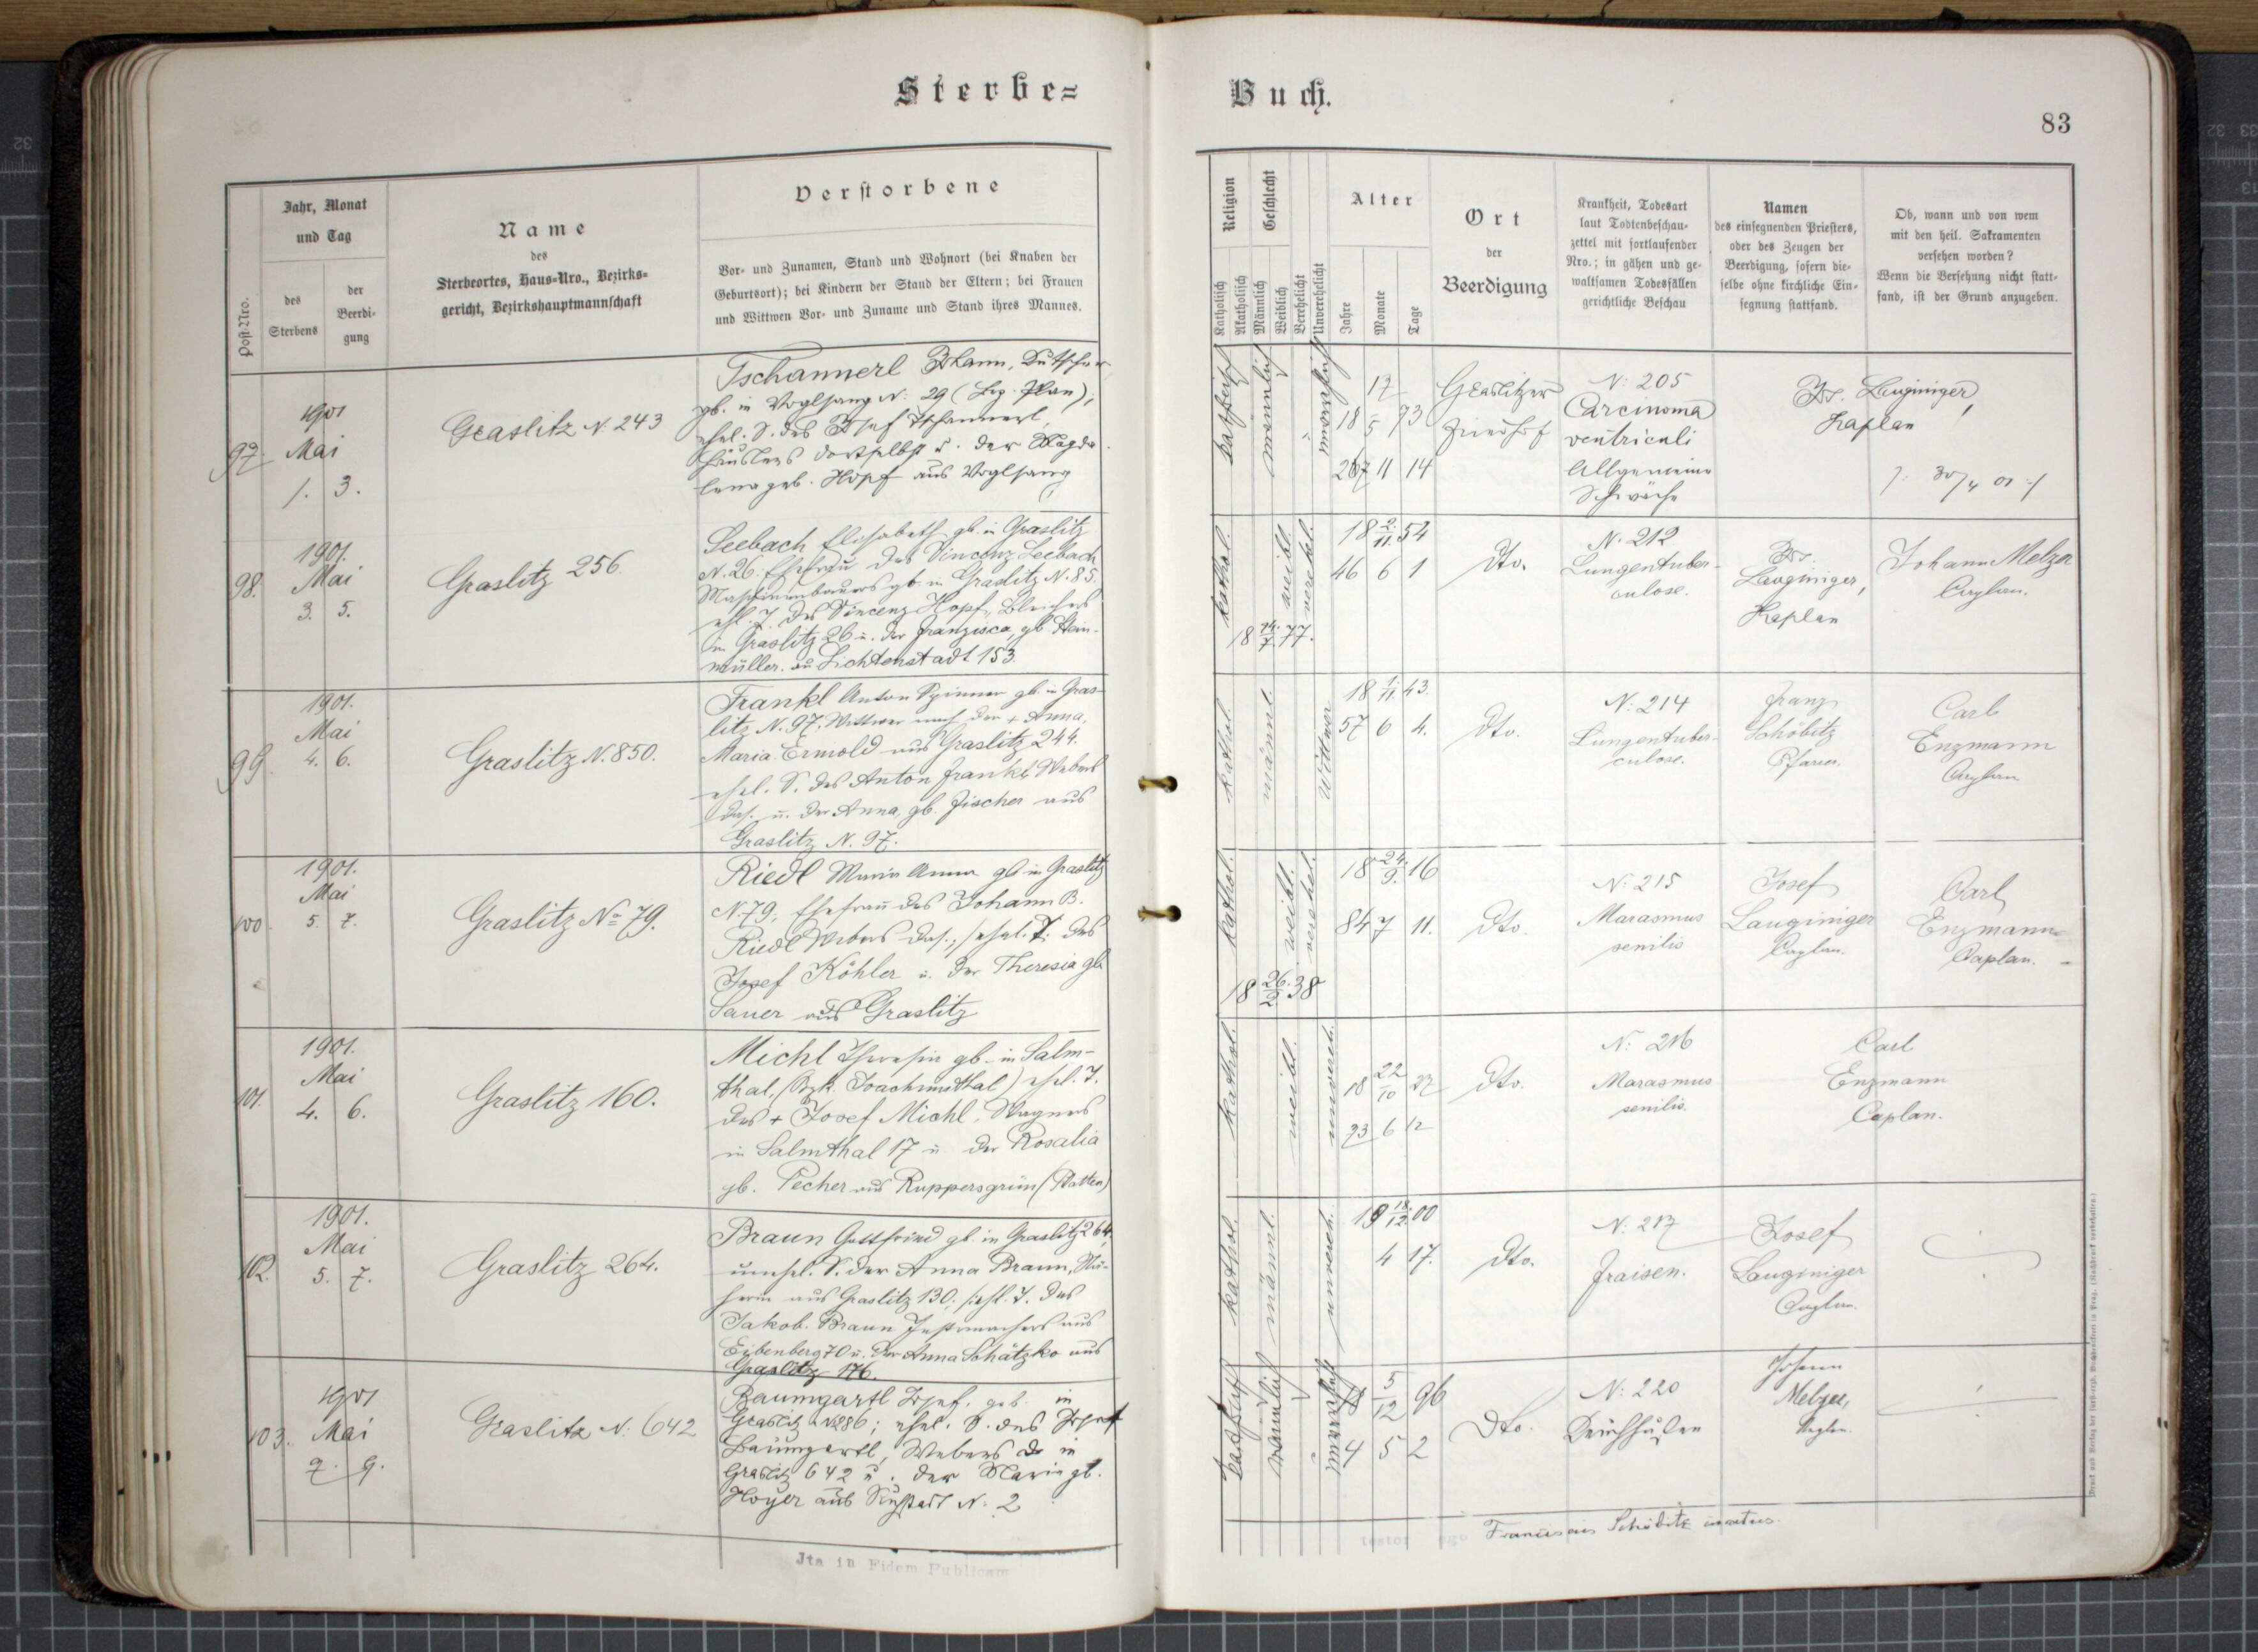 Sterbe=
Jahr, Monat
und Tag
Post-Nro.
des
Sterbens
der
Beerdi-
gung
Name
des
Sterbeortes, Haus-Nro., Bezirks-
gericht, Bezirkshauptmannschaft
Verstorbene
Vor- und Zunamen, Stand und Wohnort (bei Knaben der
Geburtsort); bei Kindern der Stand der Eltern; bei Frauen
und Wittwen Vor- und Zuname und Stand ihres Mannes.
97.
1901
Mai
1. 3.
Graslitz N. 243
Tschannerl Johann, Kutscher
gb. in Voglsang N: 29 (Bez. Plan);
ehel. S. des Josef Tschannerl,
Häuslers dortselbst u. der Magda-
lena geb. Hopf aus Voglsang
98.
1901.
Mai
3. 5.
Graslitz 256.
Seebach Elisabeth gb. in Graslitz
N. 26. Ehefrau des Vincenz Seebach
Maschinenbauers gb. in Graslitz N. 85.
ehl. T. des Vincenz Hopf, Bleichers
in Graslitz 26 u. der Franzisca, gb. Stein-
müller. aus Lichtenstadt 153.
99.
1901.
Mai
4. 6.
Graslitz N. 850.
Frankl Anton Spinner gb. in Gras-
litz N. 97. Wittwer nach der + Anna,
Maria Ermold aus Graslitz 244.
ehel. S. des Anton Frankl Webers
das. u. der Anna, gb. Fischer aus
Graslitz N. 97.
100.
1901.
Mai
5. 7.
Graslitz No 79.
Riedl Maria Anna gb. in Graslitz
N. 79, Ehefrau des Johann B.
Riedl Webers das.; ehel. T. des
Josef Köhler u. der Theresia gb.
Sauer aus Graslitz
101.
1901.
Mai
4. 6.
Graslitz 160.
Michl Theresia gb. in Salm-
thal, (Bzk. Joachimsthal) ehel. T.
des + Josef Michl, Wagners
in Salmthal 17 u. der Rosalia
gb. Pecher aus Ruppersgrün (Platten)
102.
1901.
Mai
5. 7.
Graslitz 264.
Braun Gottfried gb. in Graslitz 264,
unehel. S. der Anna Braun, Nä-
herin aus Graslitz 130; ehl. T. des
Jakob Braun aus
Eibenberg 70 u. der Anna Schätzko aus
Graslitz 176.
103.
1901
Mai
7. 9.
Graslitz N: 642
Baumgartl Josef, geb. in
Graslitz N286; ehel. S. des Josef
Baumgartl, Webers in
Graslitz 642 u. der Marie gb.
Hoyer aus N: 2
Jta in Fidem Publicam
Buch.
83
Religion
Geschlecht
Katholisch
Akatholisch
Männlich
Weiblich
Verehelicht
Unverehelicht
Alter
Jahre
Monate
Tage
Ort
der
Beerdigung
Krankheit, Todesart
laut Todtenbeschau-
zettel mit fortlaufender
Nro.; in gähen und ge-
waltsamen Todesfällen
gerichtliche Beschau
Namen
des einsegnenden Priesters,
oder des Zeugen der
Beerdigung, sofern die-
selbe ohne kirchliche Ein-
segnung stattfand.
Ob, wann und von wem
mit den heil. Sakramenten
versehen worden?
Wenn die Versehung nicht statt-
fand, ist der Grund anzugeben.
katholisch
männlich
unverehelicht
18 17/5 73
27 11 14
Graslitzer
Friedhof
N: 205
Carcinoma
ventriculi
Allgemeine
Schwäche
Jos. Lauginiger,
Kaplan
/: 30/4 01 :/
kathol.
weibl.
verehel.
18 2./11. 54
46 6 1
18 14./7. 77.
Dto.
N. 212
Lungentuber-
culose.
Jos.
Lauginiger,
Kaplan
Johann Melzer
Caplan.
kathol.
männl.
Wittwer
18 1./11. 43.
57 6 4.
Dto.
N: 214
Lungentuber-
culose.
Franz
Schöbitz
Pfarrer.
Carl
Enzmann
Caplan
kathol.
weibl.
verehel.
18 24./9. 16
84 7 11.
18 26./2. 38
Dto.
N: 215
Marasmus
senilis
Josef
Lauginiger
Caplan.
Carl
Enzmann
Caplan.
kathol.
weibl.
unvereh.
18 22/10 27
73 6 12
Dto.
N: 216
Marasmus
senilis.
Carl
Enzmann
Caplan.
kathol.
männl.
unvereh.
19 18./12. 00
4 17.
Dto.
N: 217
Fraisen.
Josef
Lauginiger
Caplan.
katholisch
männlich
unverehelicht
18 5/12 96
4 5 2
Dto.
N: 220
Johann
Melzer,
Kaplan.
testor ego Franciscus Schöbitz curatus.